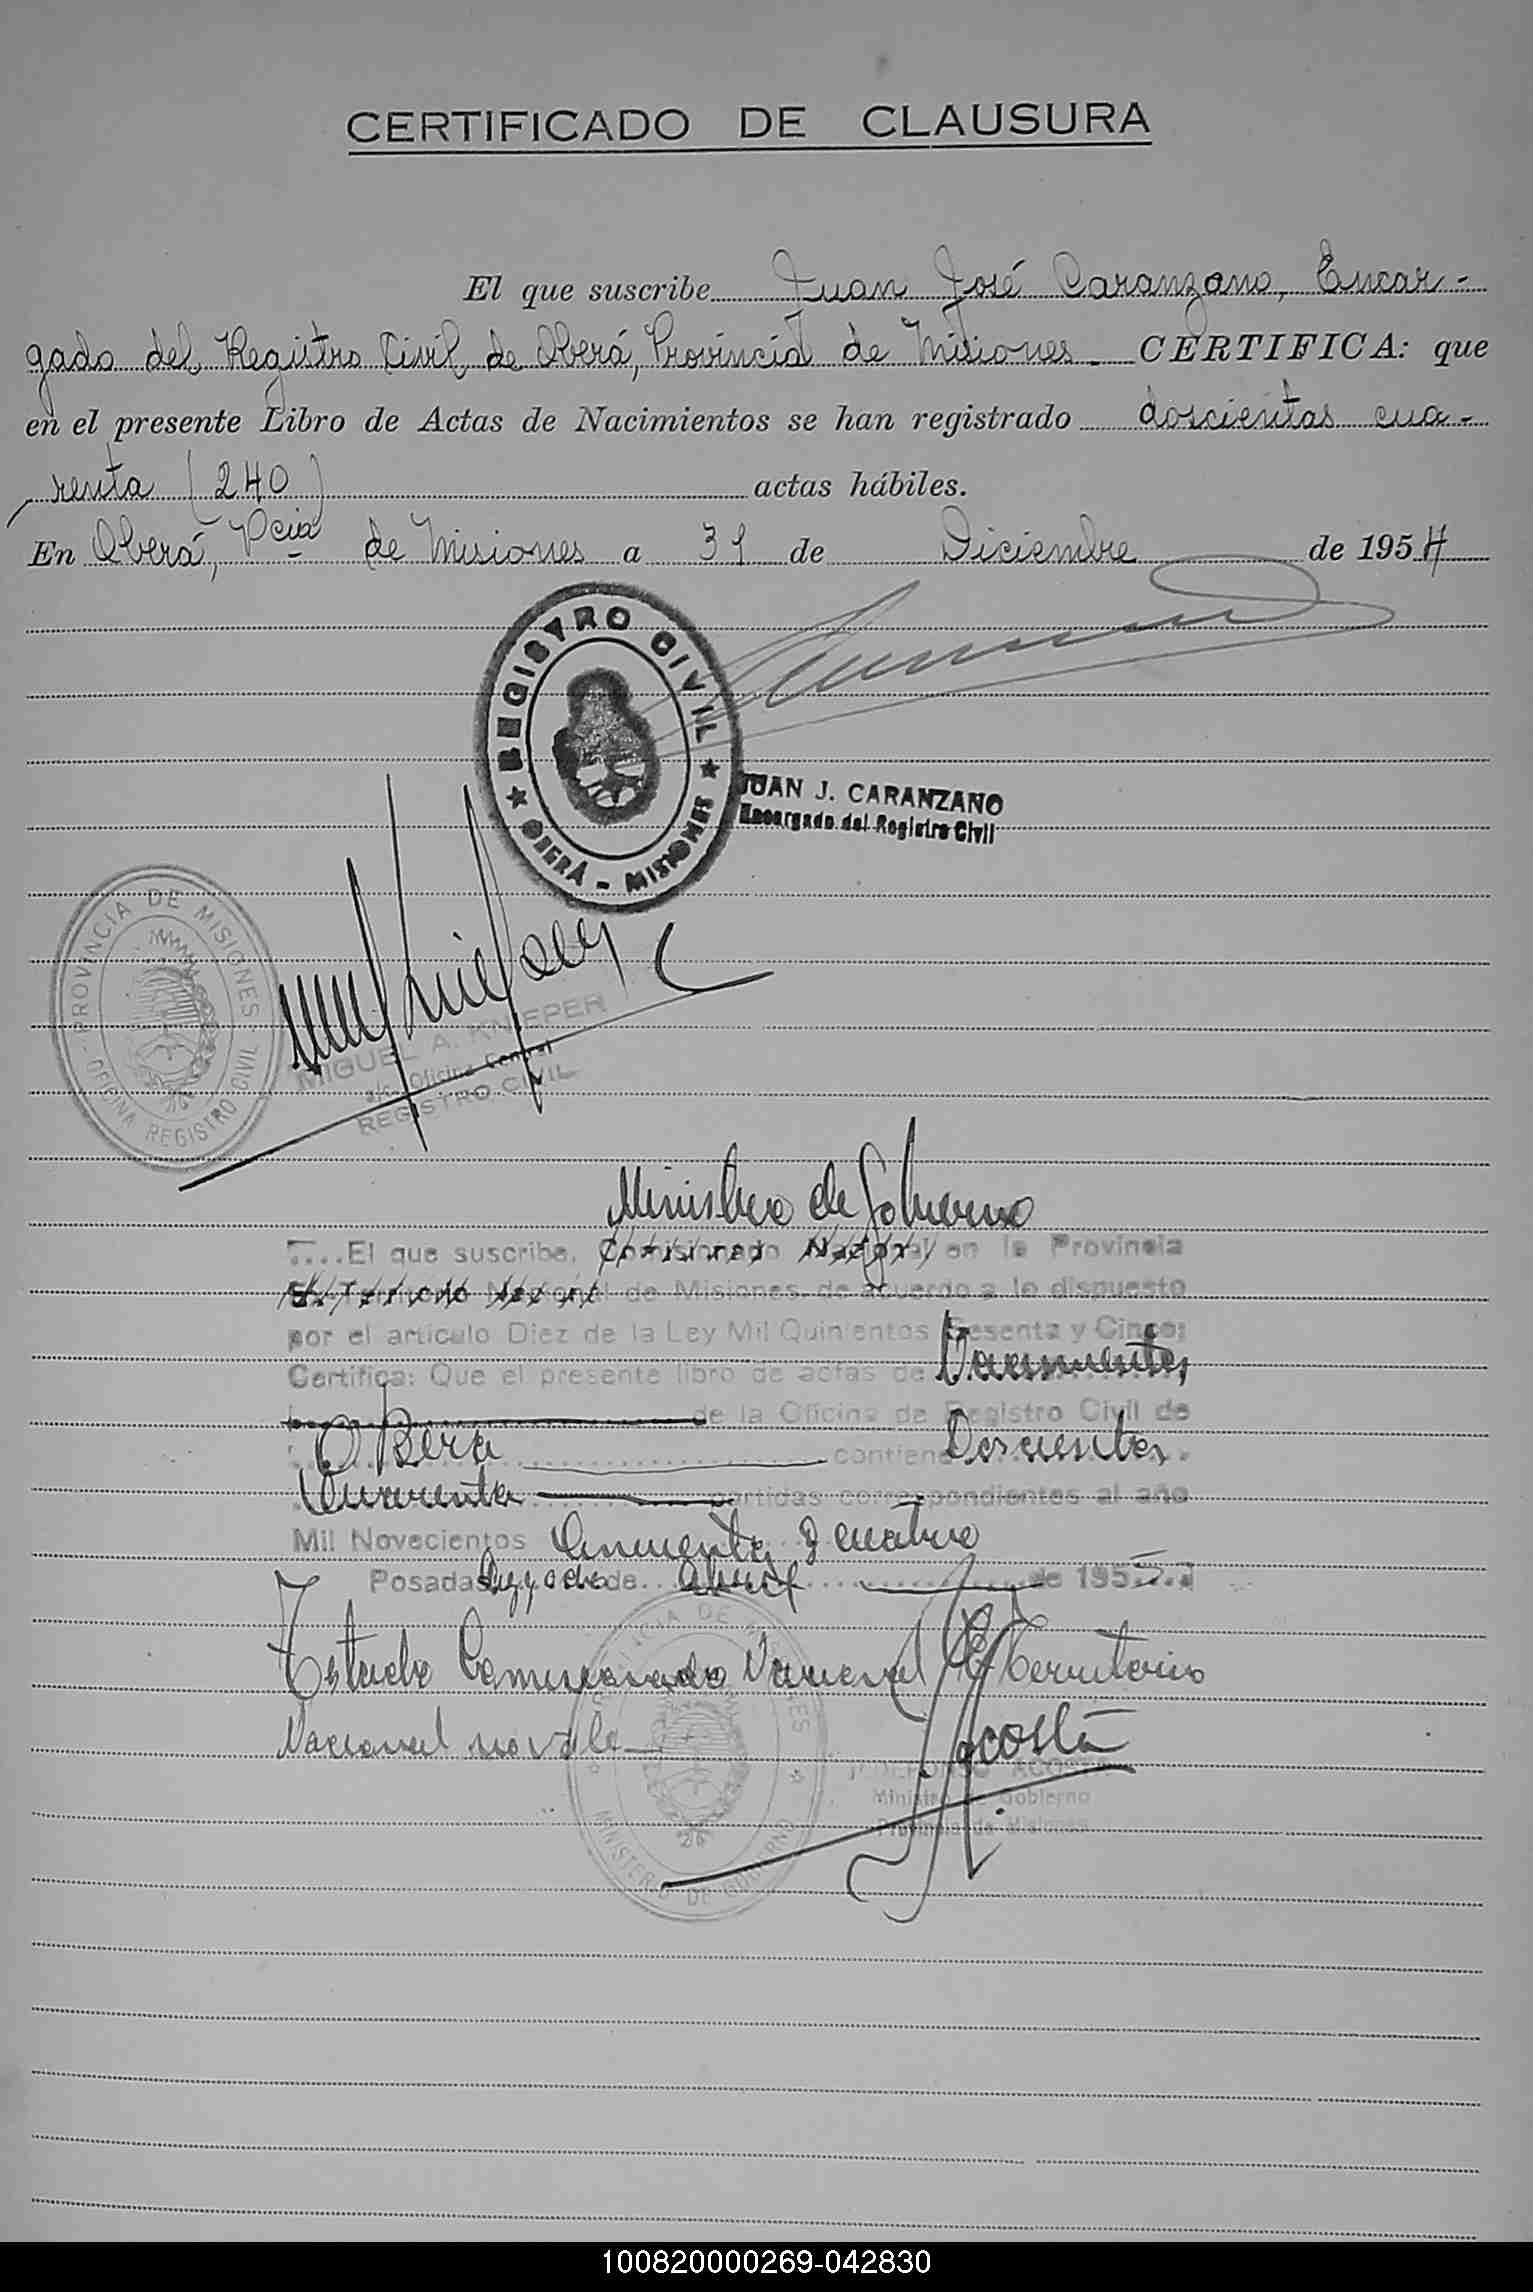 CERTIFICADO DE CLAUSURA
El que suscribe Juan José Caranzano, Encar-
gado del Registro Civil de Oberá, Provincia de Misiones. CERTIFICA: que
en el presente Libro de Actas de Nacimientos se han registrado doscientas cua-
renta (240) actas hábiles.
En Oberá, Pcia de Misiones a 31 de Diciembre de 1954
REGISTRO CIVIL
OBERÁ - MISIONES
JUAN J. CARANZANO
Encargado del Registro Civil
PROVINCIA DE MISIONES
OFICINA REGISTRO CIVIL
MIGUEL A. KNIEPER
a/c. Oficina Central
REGISTRO CIVIL
Ministro de Gobierno
El que suscribe, Comisionado Nacional en la Provincia
Ex-Territorio Nacional de Misiones, de acuerdo a lo dispuesto
por el artículo Diez de la Ley Mil Quinientos Sesenta y Cinco;
Certifica: Que el presente libro de actas de Nacimientos
de la Oficina de Registro Civil de
OBera contiene Doscientas
Cuarenta partidas correspondientes al año
Mil Novecientos Cincuenta y cuatro
Posadas, de Abril de 1955
Testado Comisionado Nacional Ex Territorio
Nacional no vale
Acosta
PROVINCIA DE MISIONES
MINISTERIO DE GOBIERNO
ILDEFONSO ACOSTA
Ministro de Gobierno
Provincia de Misiones
100820000269-042830